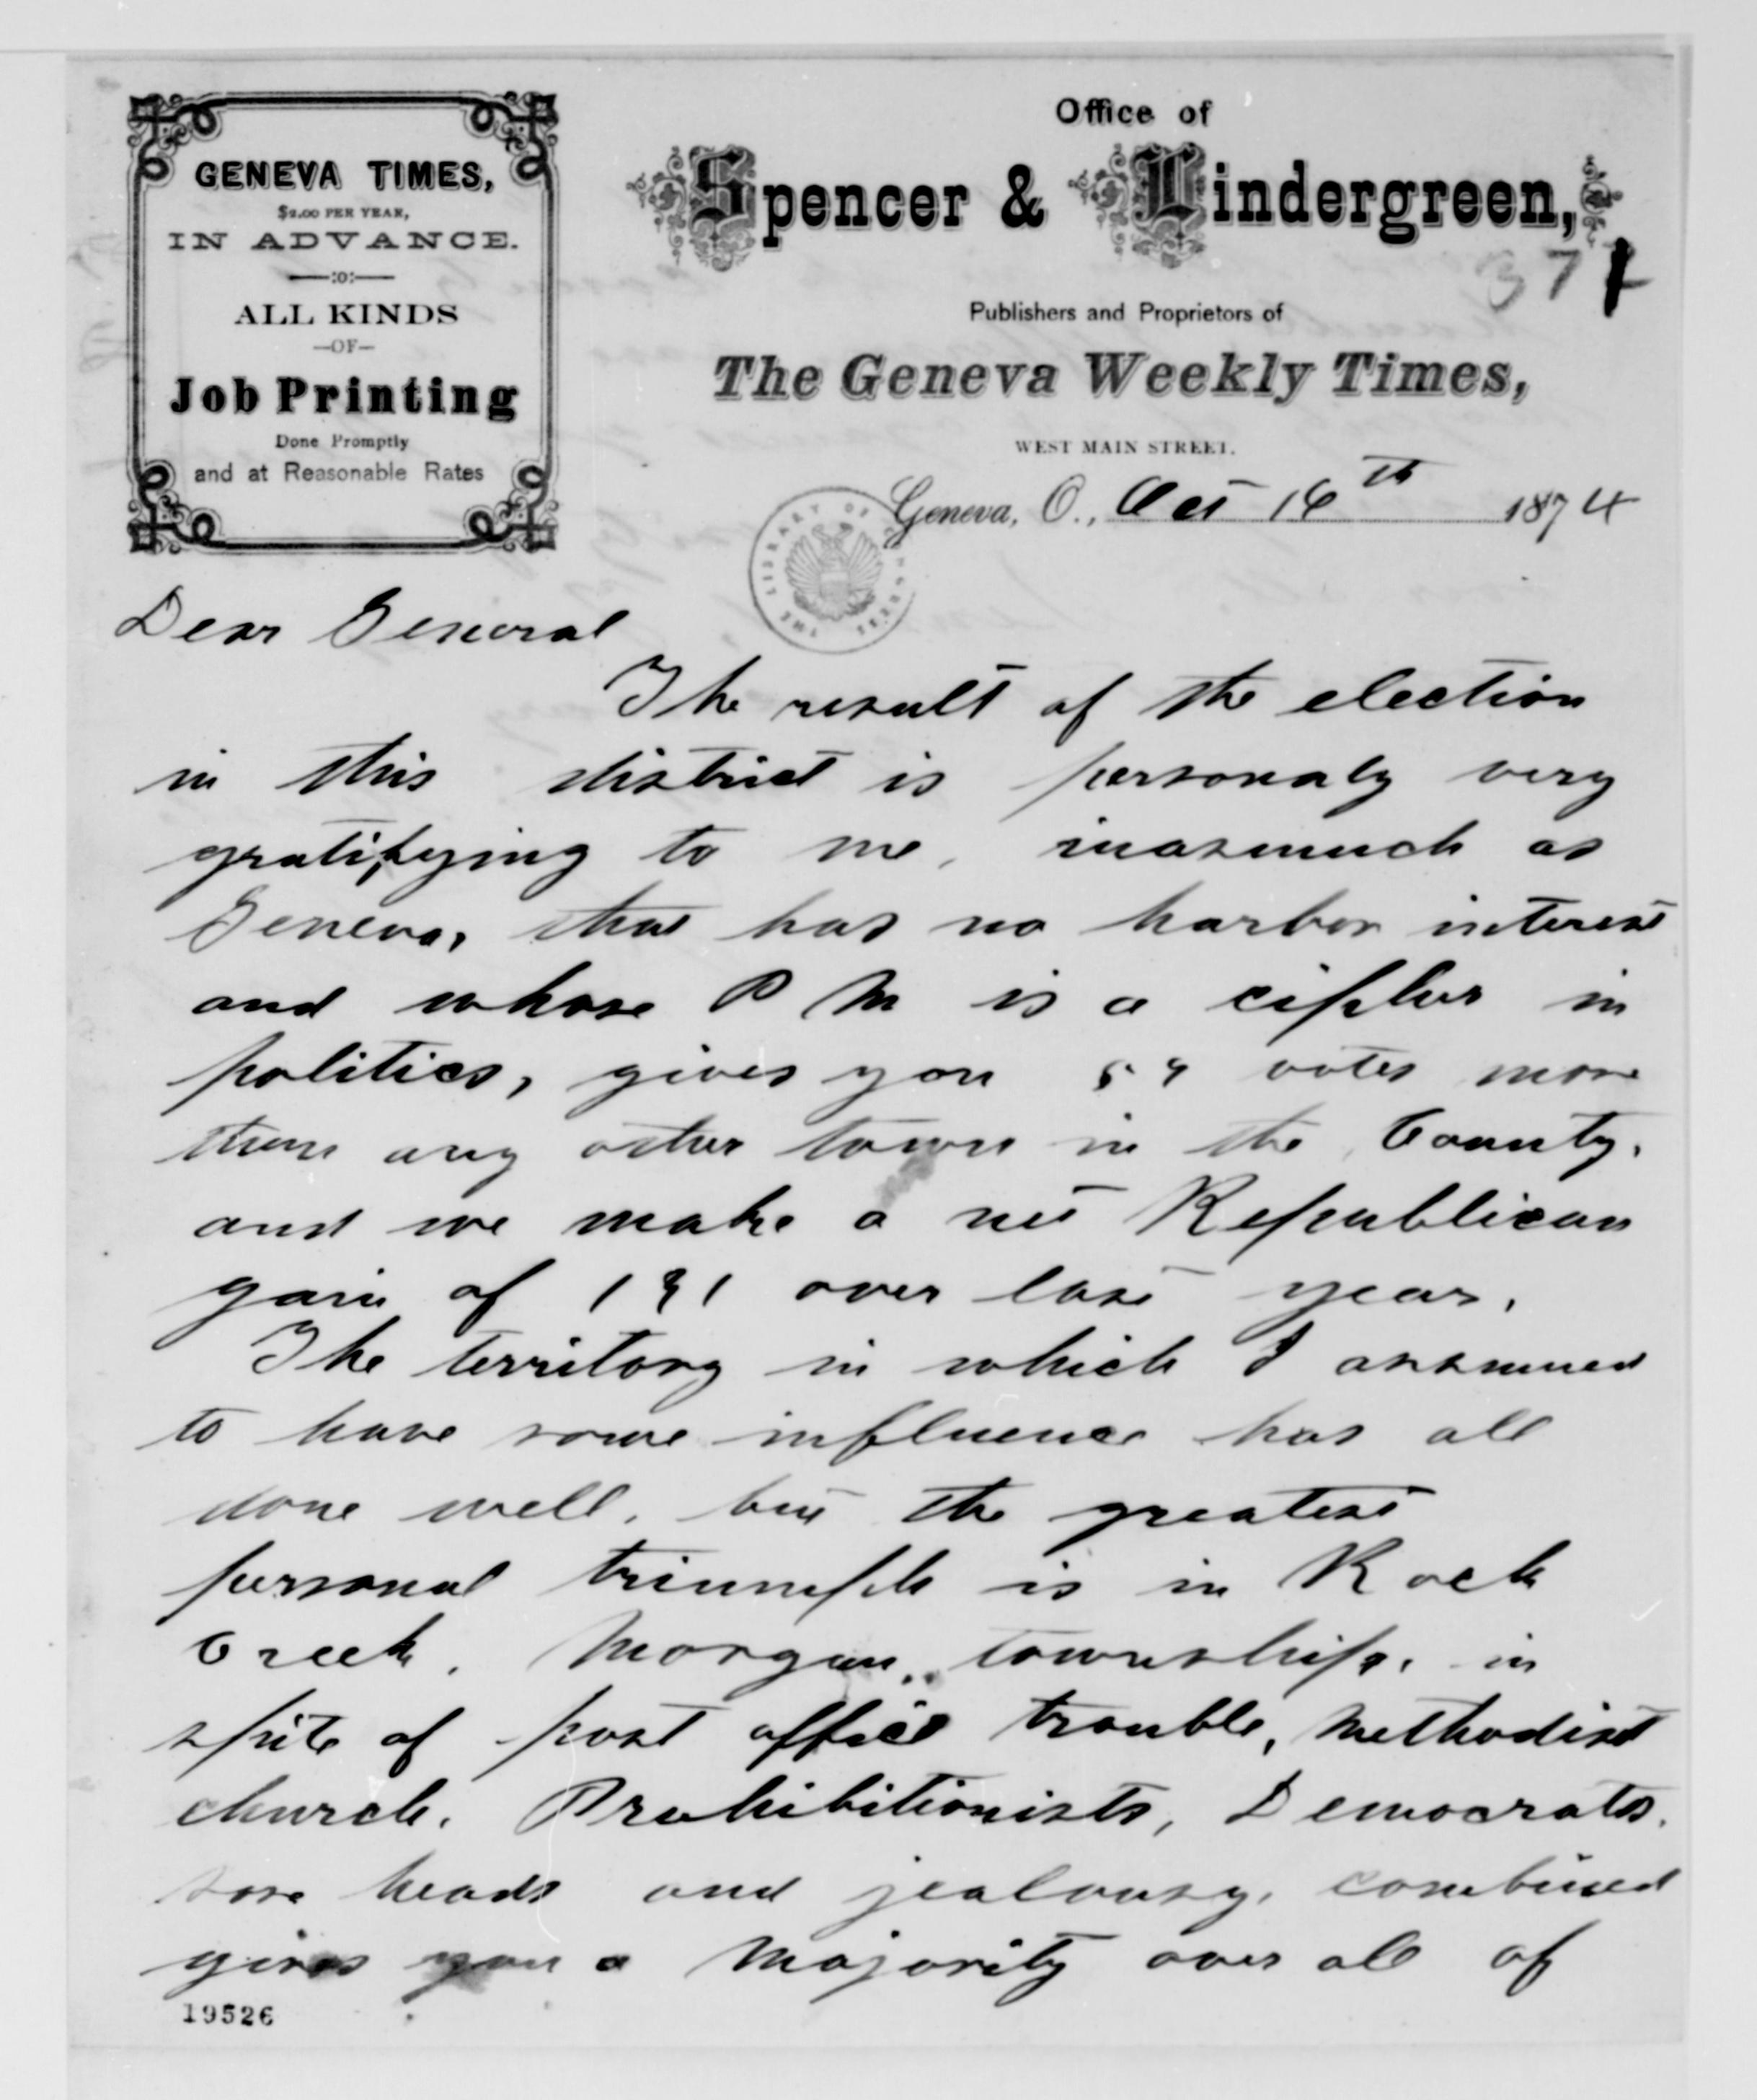 GENEVA TIMES,
$2.00 PER YEAR,
IN ADVANCE.
—:o:—
ALL KINDS
—OF—
Job Printing
Done Promptly
and at Reasonable Rates
Office of
Spencer & Lindergreen,
Publishers and Proprietors of
The Geneva Weekly Times,
WEST MAIN STREET.
Geneva, O., Oct 16th 1874
THE LIBRARY OF CONGRESS
Dear General
The result of the election
in this district is personaly very
gratifying to me, inasmuch as
Geneva, that has no harbor interest
and whose P M is a cipher in
politics, gives you votes more
than any other town in the County.
and we make a net Republican
gain of over last year.
The territory in which I assumed
to have some influence has all
done well, but the greatest
personal triumph is in Rock
Creek. Morgan township, in
spite of post office trouble, Methodist
church, Prohibitionists, Democrats,
sore heads and jealousy, combined
gives you a majority over all of
19526